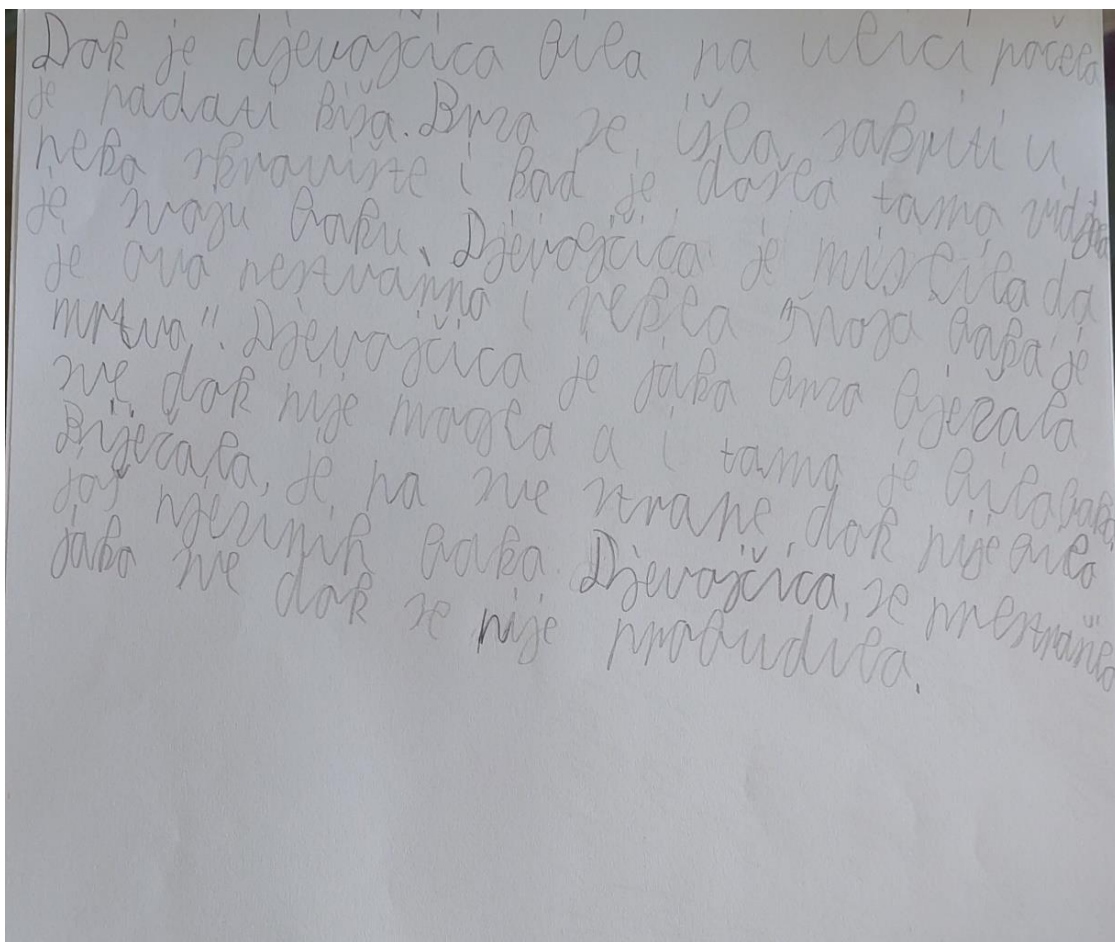 Dok je djevojčica bila na ulici počela
je padati kiša. Brzo se išla sakriti u
neko skrovište i kad je došla tamo vidjela
je svoju baku. Djevojčica je mislila da
je ovo nestvarno i rekla "moja baka je
mrtva". Djevojčica je jako brzo bježala
sve dok nije mogla a i tamo je bila baka.
Bježala, je na sve strane, dok nije bilo
još njezinih baka. Djevojčica, se prestrašila
jako sve dok se nije probudila.